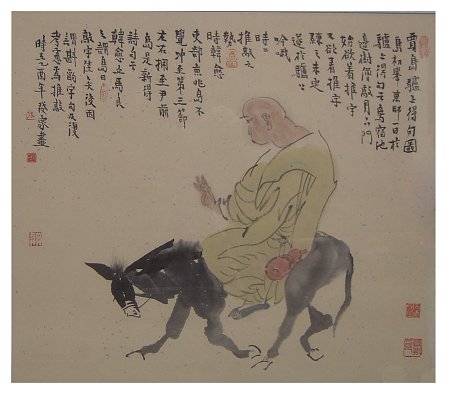 賈島驢上得句圖
島初赴京師一日於
驢上得句云鳥宿池
邊樹僧敲月下門
始欲着推字
又欲着字
練之未定
遂於驢上
吟哦
時時
推敲之
勢
時韓愈
吏部京兆島不
覺衝至第三節
左右擁至尹前
島是所得
詩句云
韓愈立馬良
久謂島曰
敲字佳矣後因
謂斟酌字句反復
考慮為推敲
時乙酉年畫